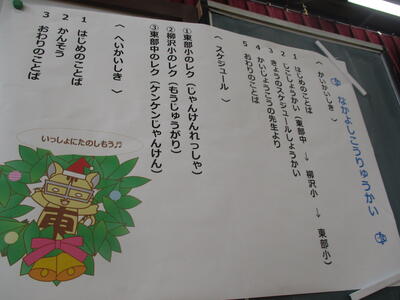 なかよしこうりゅうかい
〈 かいかいしき 〉
1 はじめのことば
2 じこしょうかい(東部中 → 柳沢小 → 東部小)
3 きょうのスケジュールしょうかい
4 かいじょうこうの先生より
5 おわりのことば
〈 スケジュール 〉
①東部小のレク(じゃんけんれっしゃ)
②柳沢小のレク(もうじゅうがり)
③東部中のレク(ケンケンじゃんけん)
〈 へいかいしき 〉
1 はじめのことば
2 かんそう
3 おわりのことば
いっしょにたのしもう♫
東